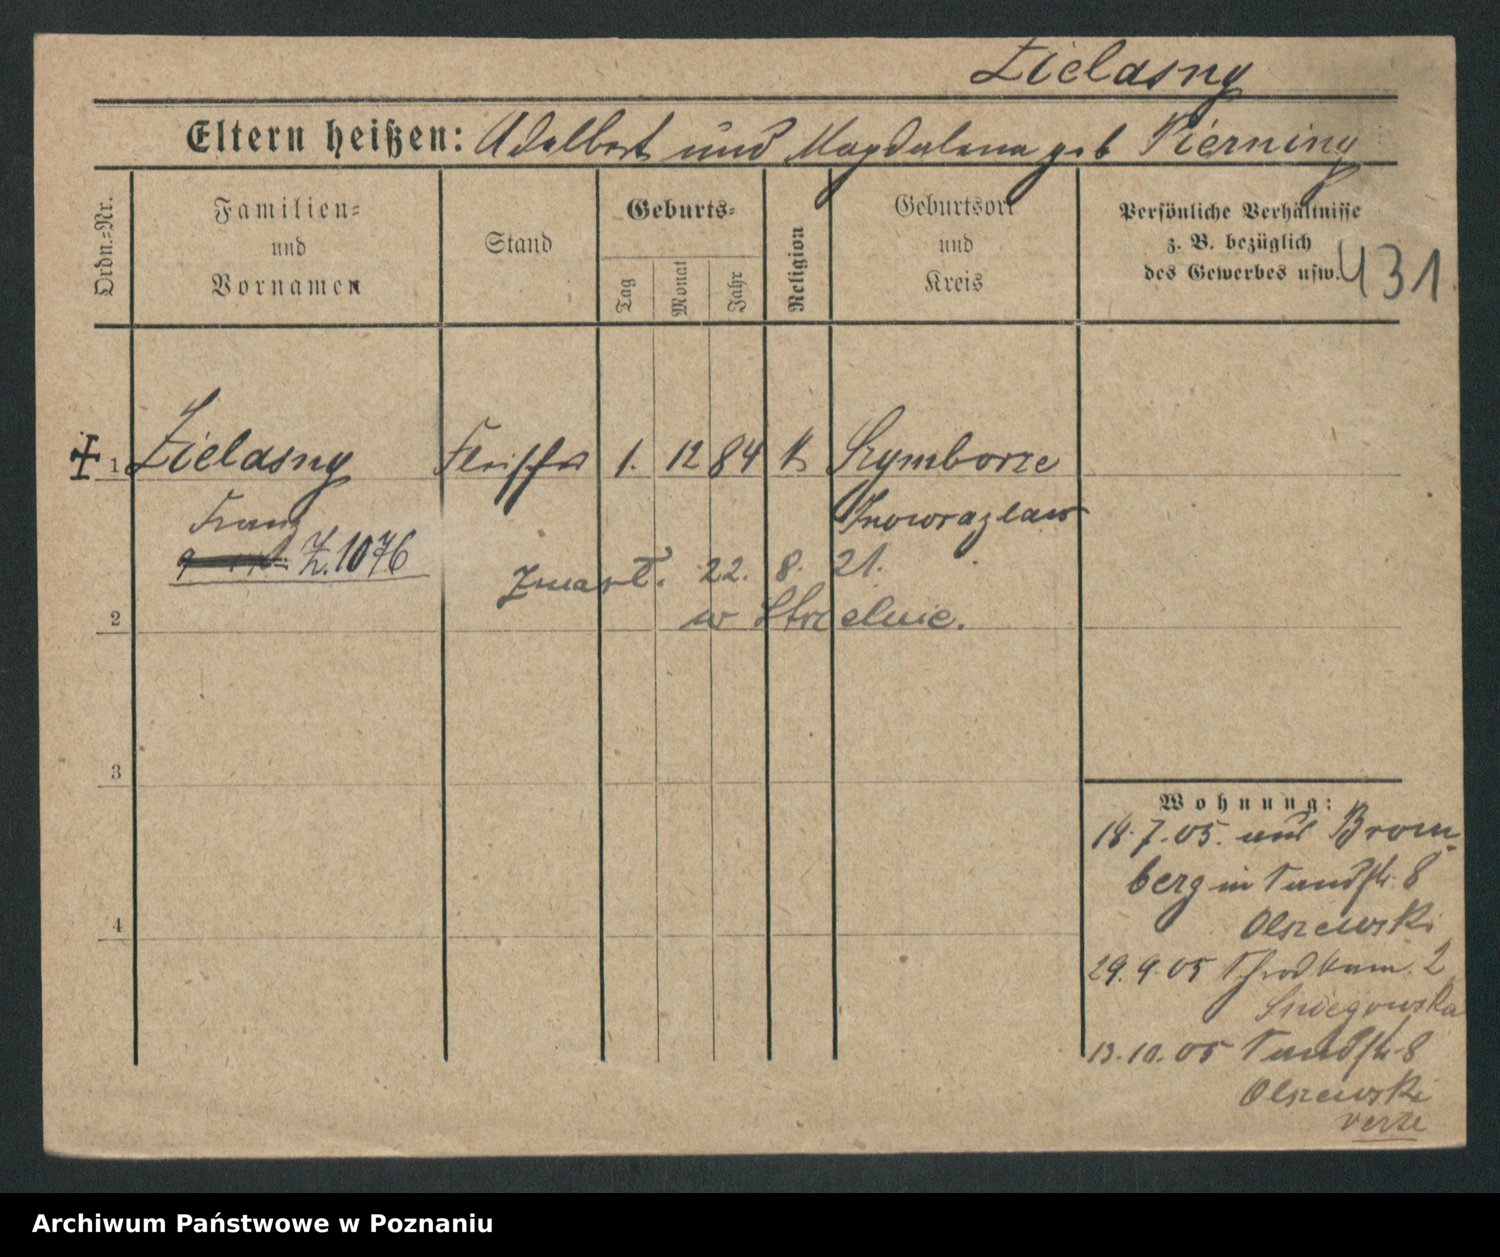 Zielasny
Eltern heißen: Adalbert und Magdalena geb Pierniny
Ordn.=Nr.
Familien=
und
Vornamen
Stand
Geburts=
Tag
Monat
Jahr
Religion
Geburtsort
und
Kreis
Persönliche Verhältnisse
z. B. bezüglich
des Gewerbes usw.
431
1 Zielasny 1. 12 84 k Szymborze
Franz Inowrazlaw
Z. 1076
Zmarł. 22. 8. 21.
w Strzelnie.
2
3
4
Wohnung:
18.7.05. aus Brom-
berg in 8
Olszewski
29.9.05 2
Sniegowska
13.10.05 8
Olszewski
verte
Archiwum Państwowe w Poznaniu